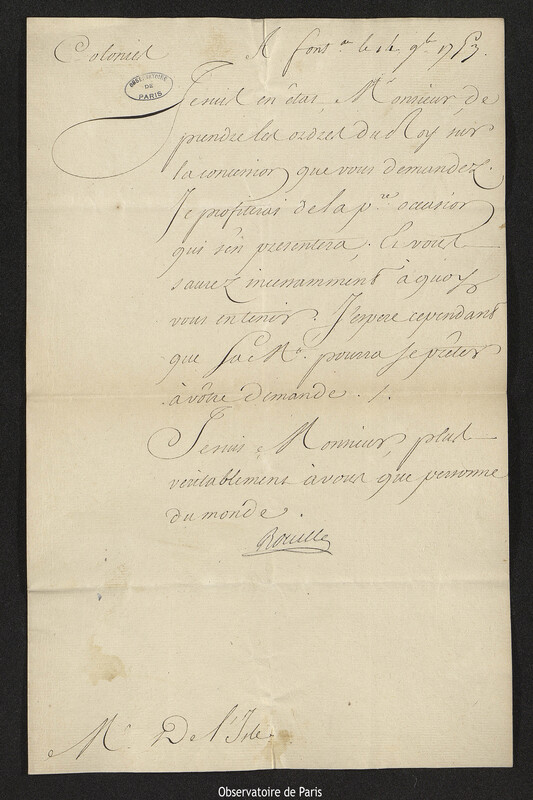 Colonies
A font.au le 14 9bre 1753.
OBSERVATOIRE
DE
PARIS
Je suis en état, Mr Monsieur, de
prendre les ordres du Roy sur
la concession que vous demandez.
Je profiterai de la pre occasion
qui s'en presentera, et vous
saurez incessamment à quoy
vous en tenir. J'espere cependant
que Sa Mté pourra se prêter
à vôtre demande ./.
Je suis, Monsieur, plus
veritablement à vous que personne
du monde.
Rouillé
Mr De l'Isle.
Observatoire de Paris